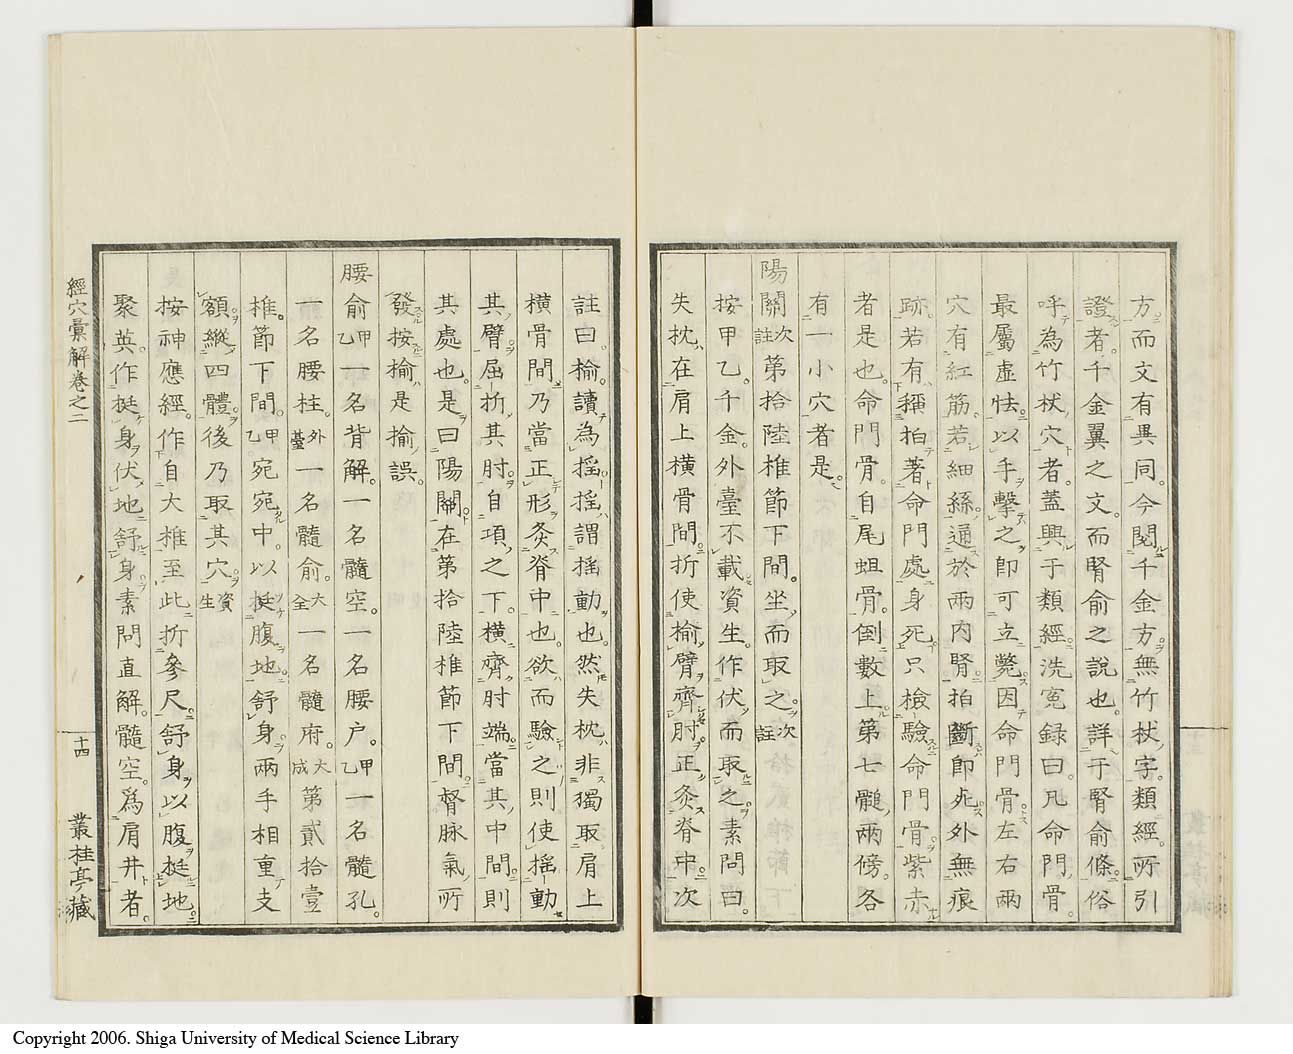 方而文有異同。今閱千金方。無竹杖字。類經。所引
證者。千金翼之文。而腎俞之說也。詳于腎俞條。俗
呼為竹杖穴者。蓋興于類經。洗冤録曰。凡命門骨。
最屬虛怯。以手擊之。卽可立斃。因命門骨左右兩
穴有紅筋。若細絲。通於兩內腎。拍斷卽死。外無痕
跡。若有稱拍著命門處身死。只檢驗命門骨。紫赤
者是也。命門骨。自尾蛆骨。倒數上第七髓。兩傍。各
有一小穴者是。
陽關註次第拾陸椎節下間。坐而取之。註次
按甲乙。千金。外臺不載。資生。作伏而取之。素問曰。
失枕在肩上橫骨間。折使揄臂。齊肘。正灸脊中。次
註曰。揄。讀為搖。搖謂搖動也。然失枕。非獨取肩上
橫骨間。乃當正形灸脊中也。欲而驗之。則使搖動
其臂屈折其肘。自項之下。橫齊肘端。當其中間。則
其處也。是曰陽關。在第拾陸椎節下間。督脉氣所
發。按揄是揄誤。
腰俞乙甲一名背解。一名髓空。一名腰户。乙甲一名髓孔。
一名腰柱。臺外一名髓俞。全大一名髓府。成大第貳拾壹
椎。節下間。乙甲宛宛中。以挺腹地。舒身。兩手相重支
額。縱四體。後乃取其穴。生資
按神應經。作自大椎。至此折參尺。舒身。以腹挺地。
聚英。作挺身伏地舒身。素問直解。髓空。爲肩井者。
經穴彙解卷之二
十四
叢桂亭藏
Copyright 2006. Shiga University of Medical Science Library